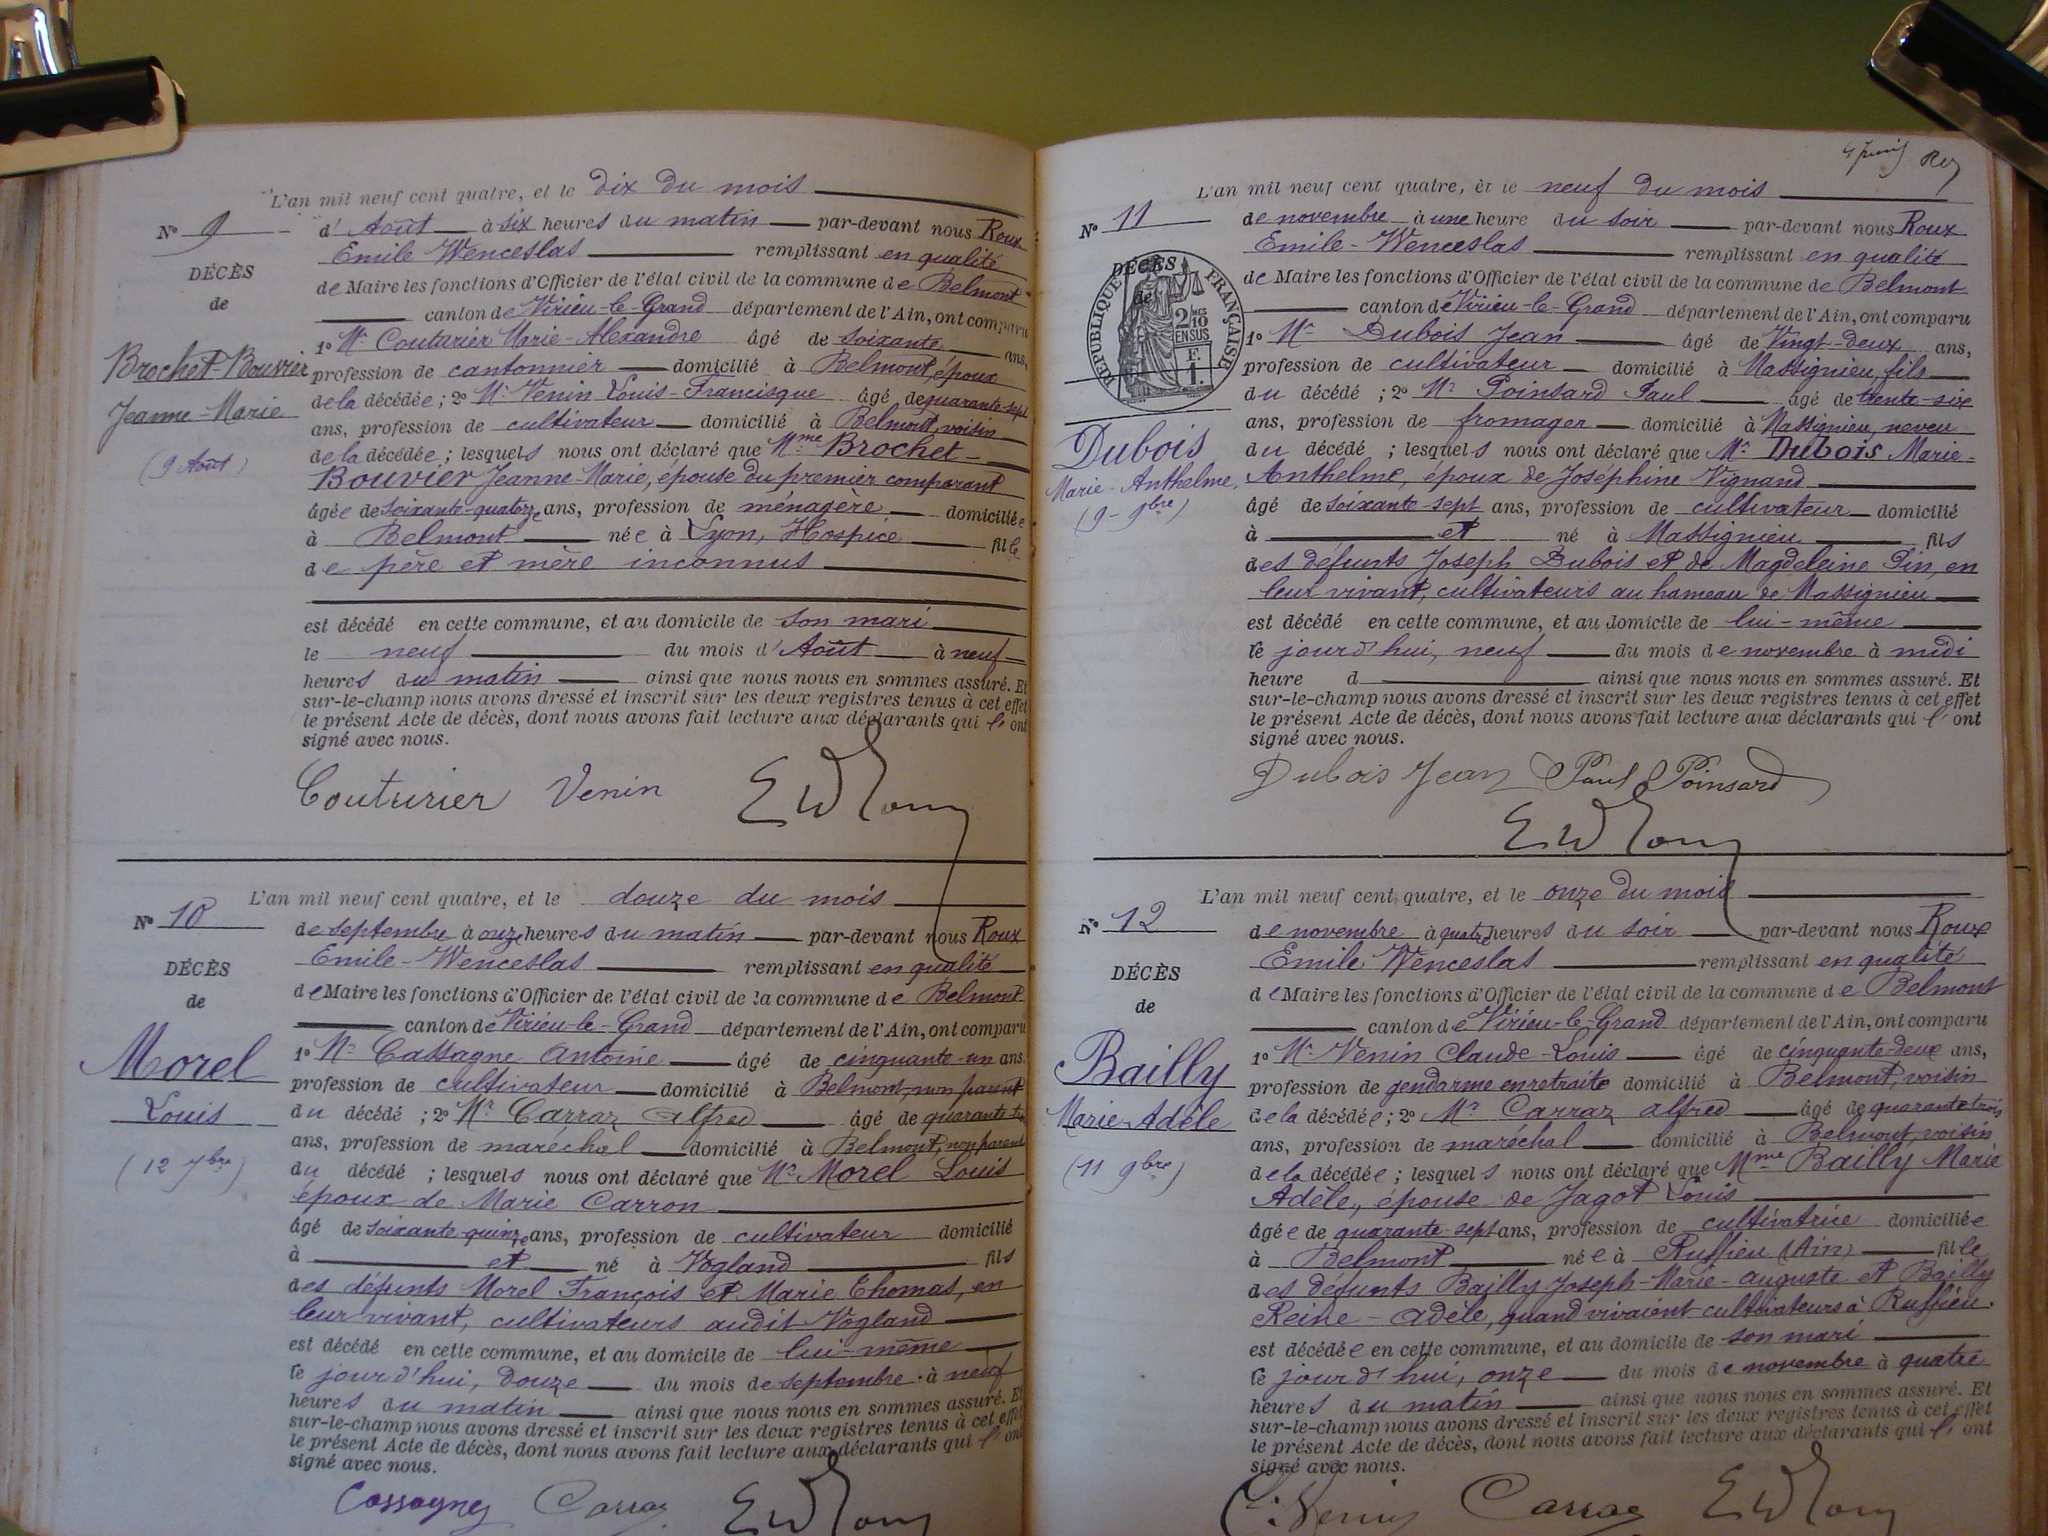 L'an mil neuf cent quatre, et le dix du mois
N° 9
d'Août à six heures du matin par-devant nous Roux
Emile Wenceslas remplissant en qualité
DÉCÈS
de Maire les fonctions d'Officier de l'état civil de la commune de Belmont
de
canton de Virieu-le-Grand département de l'Ain, ont comparu
1° Mr Couturier Marie-Alexandre âgé de soixante ans,
Brochet-Bouvier
profession de cantonnier domicilié à Belmont, époux
de la décédée ; 2° Mr Venin Louis-Francisque âgé de quarante-sept
Jeanne-Marie
ans, profession de cultivateur domicilié à Belmont, voisin
de la décédée ; lesquels nous ont déclaré que Mme Brochet-
(9 Août)
Bouvier Jeanne-Marie, épouse du premier comparant
âgée de soixante-quatorze ans, profession de ménagère domiciliée
à Belmont née à Lyon, Hospice fille
de père et mère inconnus
est décédé en cette commune, et au domicile de son mari
le neuf du mois d'Août à neuf
heures du matin ainsi que nous nous en sommes assuré. Et
sur-le-champ nous avons dressé et inscrit sur les deux registres tenus à cet effet
le présent Acte de décès, dont nous avons fait lecture aux déclarants qui l'ont
signé avec nous.
Couturier Venin E W Roux
L'an mil neuf cent quatre, et le douze du mois
N° 10
de septembre à onze heures du matin par-devant nous Roux
Emile-Wenceslas remplissant en qualité
DÉCÈS
de Maire les fonctions d'Officier de l'état civil de la commune de Belmont
de
canton de Virieu-le-Grand département de l'Ain, ont comparu
Morel
1° Mr Cassagne Antoine âgé de cinquante-un ans,
profession de cultivateur domicilié à Belmont, non parent
Louis
du décédé ; 2° Mr Carraz Alfred âgé de quarante-trois
ans, profession de maréchal domicilié à Belmont, non parent
(12 7bre)
du décédé ; lesquels nous ont déclaré que Mr Morel Louis
époux de Marie Carron
âgé de soixante-quinze ans, profession de cultivateur domicilié
à et né à Vogland fils
des défunts Morel François et Marie Thomas, en
leur vivant, cultivateurs audit Vogland
est décédé en cette commune, et au domicile de lui-même
le jourd'hui, douze du mois de septembre à neuf
heures du matin ainsi que nous nous en sommes assuré. Et
sur-le-champ nous avons dressé et inscrit sur les deux registres tenus à cet effet
le présent Acte de décès, dont nous avons fait lecture aux déclarants qui l'ont
signé avec nous.
Cassagne Carraz E W Roux
L'an mil neuf cent quatre, et le neuf du mois
N° 11
de novembre à une heure du soir par-devant nous Roux
Emile-Wenceslas remplissant en qualité
DÉCÈS
de
RÉPUBLIQUE FRANÇAISE
2/10 EN SUS
F. 1.
de Maire les fonctions d'Officier de l'état civil de la commune de Belmont
canton de Virieu-le-Grand département de l'Ain, ont comparu
1° Mr Dubois Jean âgé de Vingt-deux ans,
profession de cultivateur domicilié à Massignieu, fils
du décédé ; 2° Mr Poinsard Paul âgé de trente-six
ans, profession de fromager domicilié à Massignieu, neveu
Dubois
du décédé ; lesquels nous ont déclaré que Mr Dubois Marie-
Marie-Anthelme,
Anthelme, époux de Joséphine Vignand
(9-9bre)
âgé de soixante-sept ans, profession de cultivateur domicilié
à et né à Massignieu fils
des défunts Joseph Dubois et de Magdeleine Pin, en
leur vivant, cultivateurs au hameau de Massignieu
est décédé en cette commune, et au domicile de lui-même
le jourd'hui, neuf du mois de novembre à midi
heure d ainsi que nous nous en sommes assuré. Et
sur-le-champ nous avons dressé et inscrit sur les deux registres tenus à cet effet
le présent Acte de décès, dont nous avons fait lecture aux déclarants qui l'ont
signé avec nous.
Dubois Jean Paul Poinsard
E W Roux
L'an mil neuf cent quatre, et le onze du mois
N° 12
de novembre à quatre heures du soir par-devant nous Roux
Emile Wenceslas remplissant en qualité
DÉCÈS
de Maire les fonctions d'Officier de l'état civil de la commune de Belmont
de
canton de Virieu-le-Grand département de l'Ain, ont comparu
Bailly
1° Mr Venin Claude-Louis âgé de cinquante-deux ans,
profession de gendarme en retraite domicilié à Belmont, voisin
Marie-Adèle
de la décédée ; 2° Mr Carraz Alfred âgé de quarante trois
ans, profession de maréchal domicilié à Belmont, voisin
(11 9bre)
de la décédée ; lesquels nous ont déclaré que Mme Bailly Marie
Adèle, épouse de Jagot Louis
âgée de quarante-sept ans, profession de cultivatrice domiciliée
à Belmont née à Ruffieu (Ain) fille
des défunts Bailly Joseph-Marie-Auguste et Bailly
Reine-Adèle, quand vivaient cultivateurs à Ruffieu.
est décédée en cette commune, et au domicile de son mari
le jourd'hui, onze du mois de novembre à quatre
heures du matin ainsi que nous nous en sommes assuré. Et
sur-le-champ nous avons dressé et inscrit sur les deux registres tenus à cet effet
le présent Acte de décès, dont nous avons fait lecture aux déclarants qui l'ont
signé avec nous.
C. Venin Carraz E W Roux